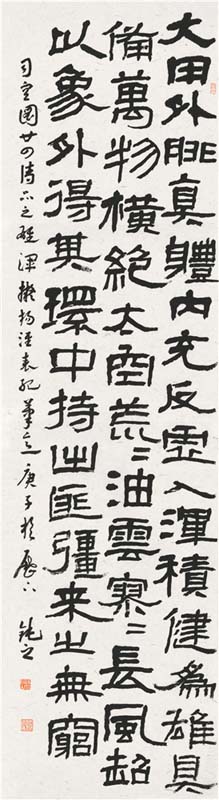 大用外腓真體內充反虛入渾積健為雄具
備萬物橫絕太空荒〻油雲寥〻長風超
以象外得其環中持之匪彊來之無窮
司空圖廿四詩品之雄渾擬楊淮表紀筆意庚子於歷下